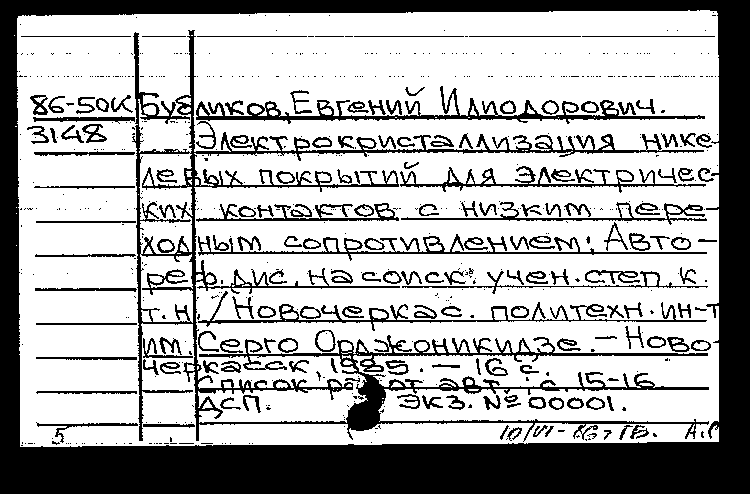 86-50К Бубликов, Евгений Илиодорович.
3148 Электрокристаллизация нике-
левых покрытий для электричес-
ких контактов с низким пере-
ходным сопротивлением: Авто-
реф. дис. на соиск. учен. степ. к.
т.н. / Новочеркас. политехн. ин-т
им. Серго Орджоникидзе. — Ново-
черкасск, 1985. — 16 с.
Список работ авт.: с. 15-16.
ДСП. ЭКЗ. № 00001.
5 10/VI-86г